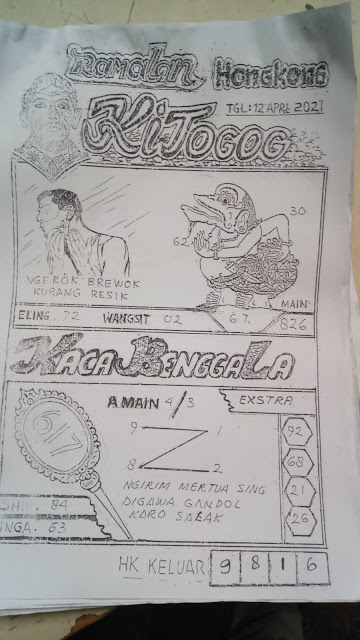 Ramalan Hongkong
TGL: 12 APRL 2021
Ki Togog
30
62
NGEROK BREWOK
KURANG RESIK
MAIN
ELING. 72 WANGSIT 02 67. 826
KACA BENGGALA
A MAIN 4/3 EXSTRA
617
9 1
8 2
92
68
21
26
NGIRIM MERTUA SING
DIGAWA GANDOL
KARO SALAK
SHIO. 84
NGA. 63
HK KELUAR 9 8 1 6